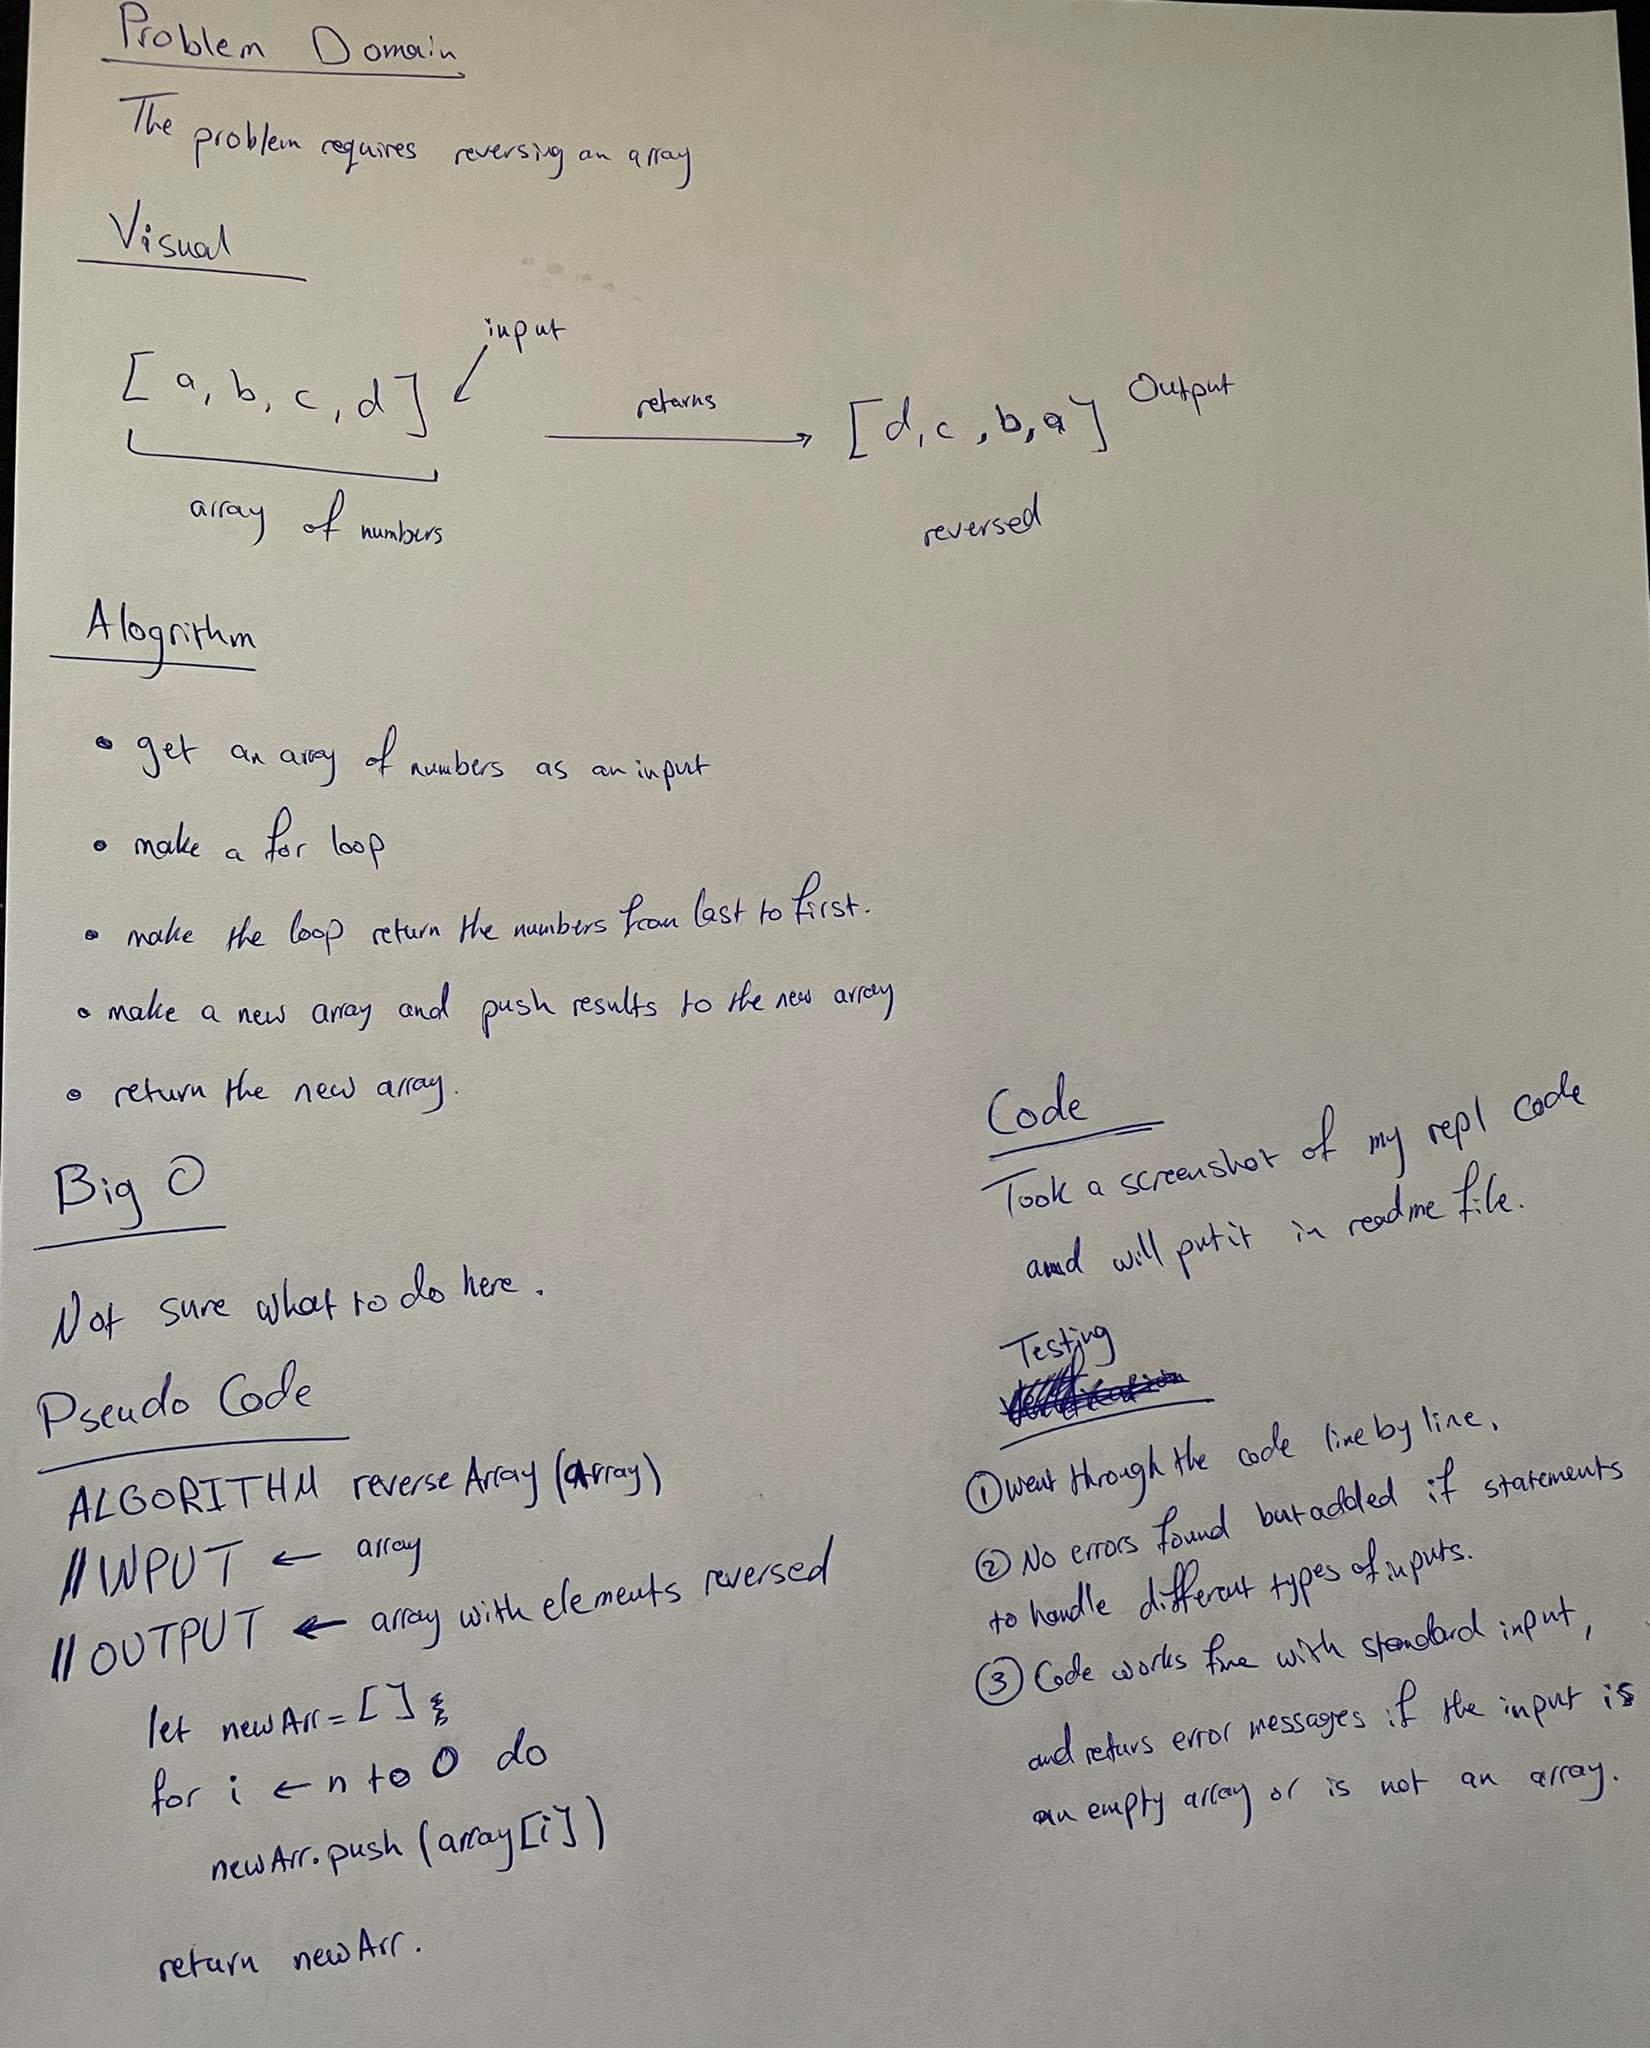 Problem Domain
The problem requires reversing an array
Visual
input
[ a, b, c, d ]
returns
[ d, c, b, a ] Output
array of numbers
reversed
Alogrithm
• get an array of numbers as an input
• make a for loop
• make the loop return the numbers from last to first.
• make a new array and push results to the new array
• return the new array.
Big O
Not sure what to do here.
Pseudo Code
ALGORITHM reverseArray (array)
// INPUT ← array
// OUTPUT ← array with elements reversed
let newArr = [];
for i ← n to 0 do
newArr.push (array[i])
return newArr.
Code
Took a screenshot of my repl code
and will put it in readme file.
Testing
① went through the code line by line.
② No errors found but added if statements
to handle different types of inputs.
③ Code works fine with standard input,
and returs error messages if the input is
an empty array or is not an array.